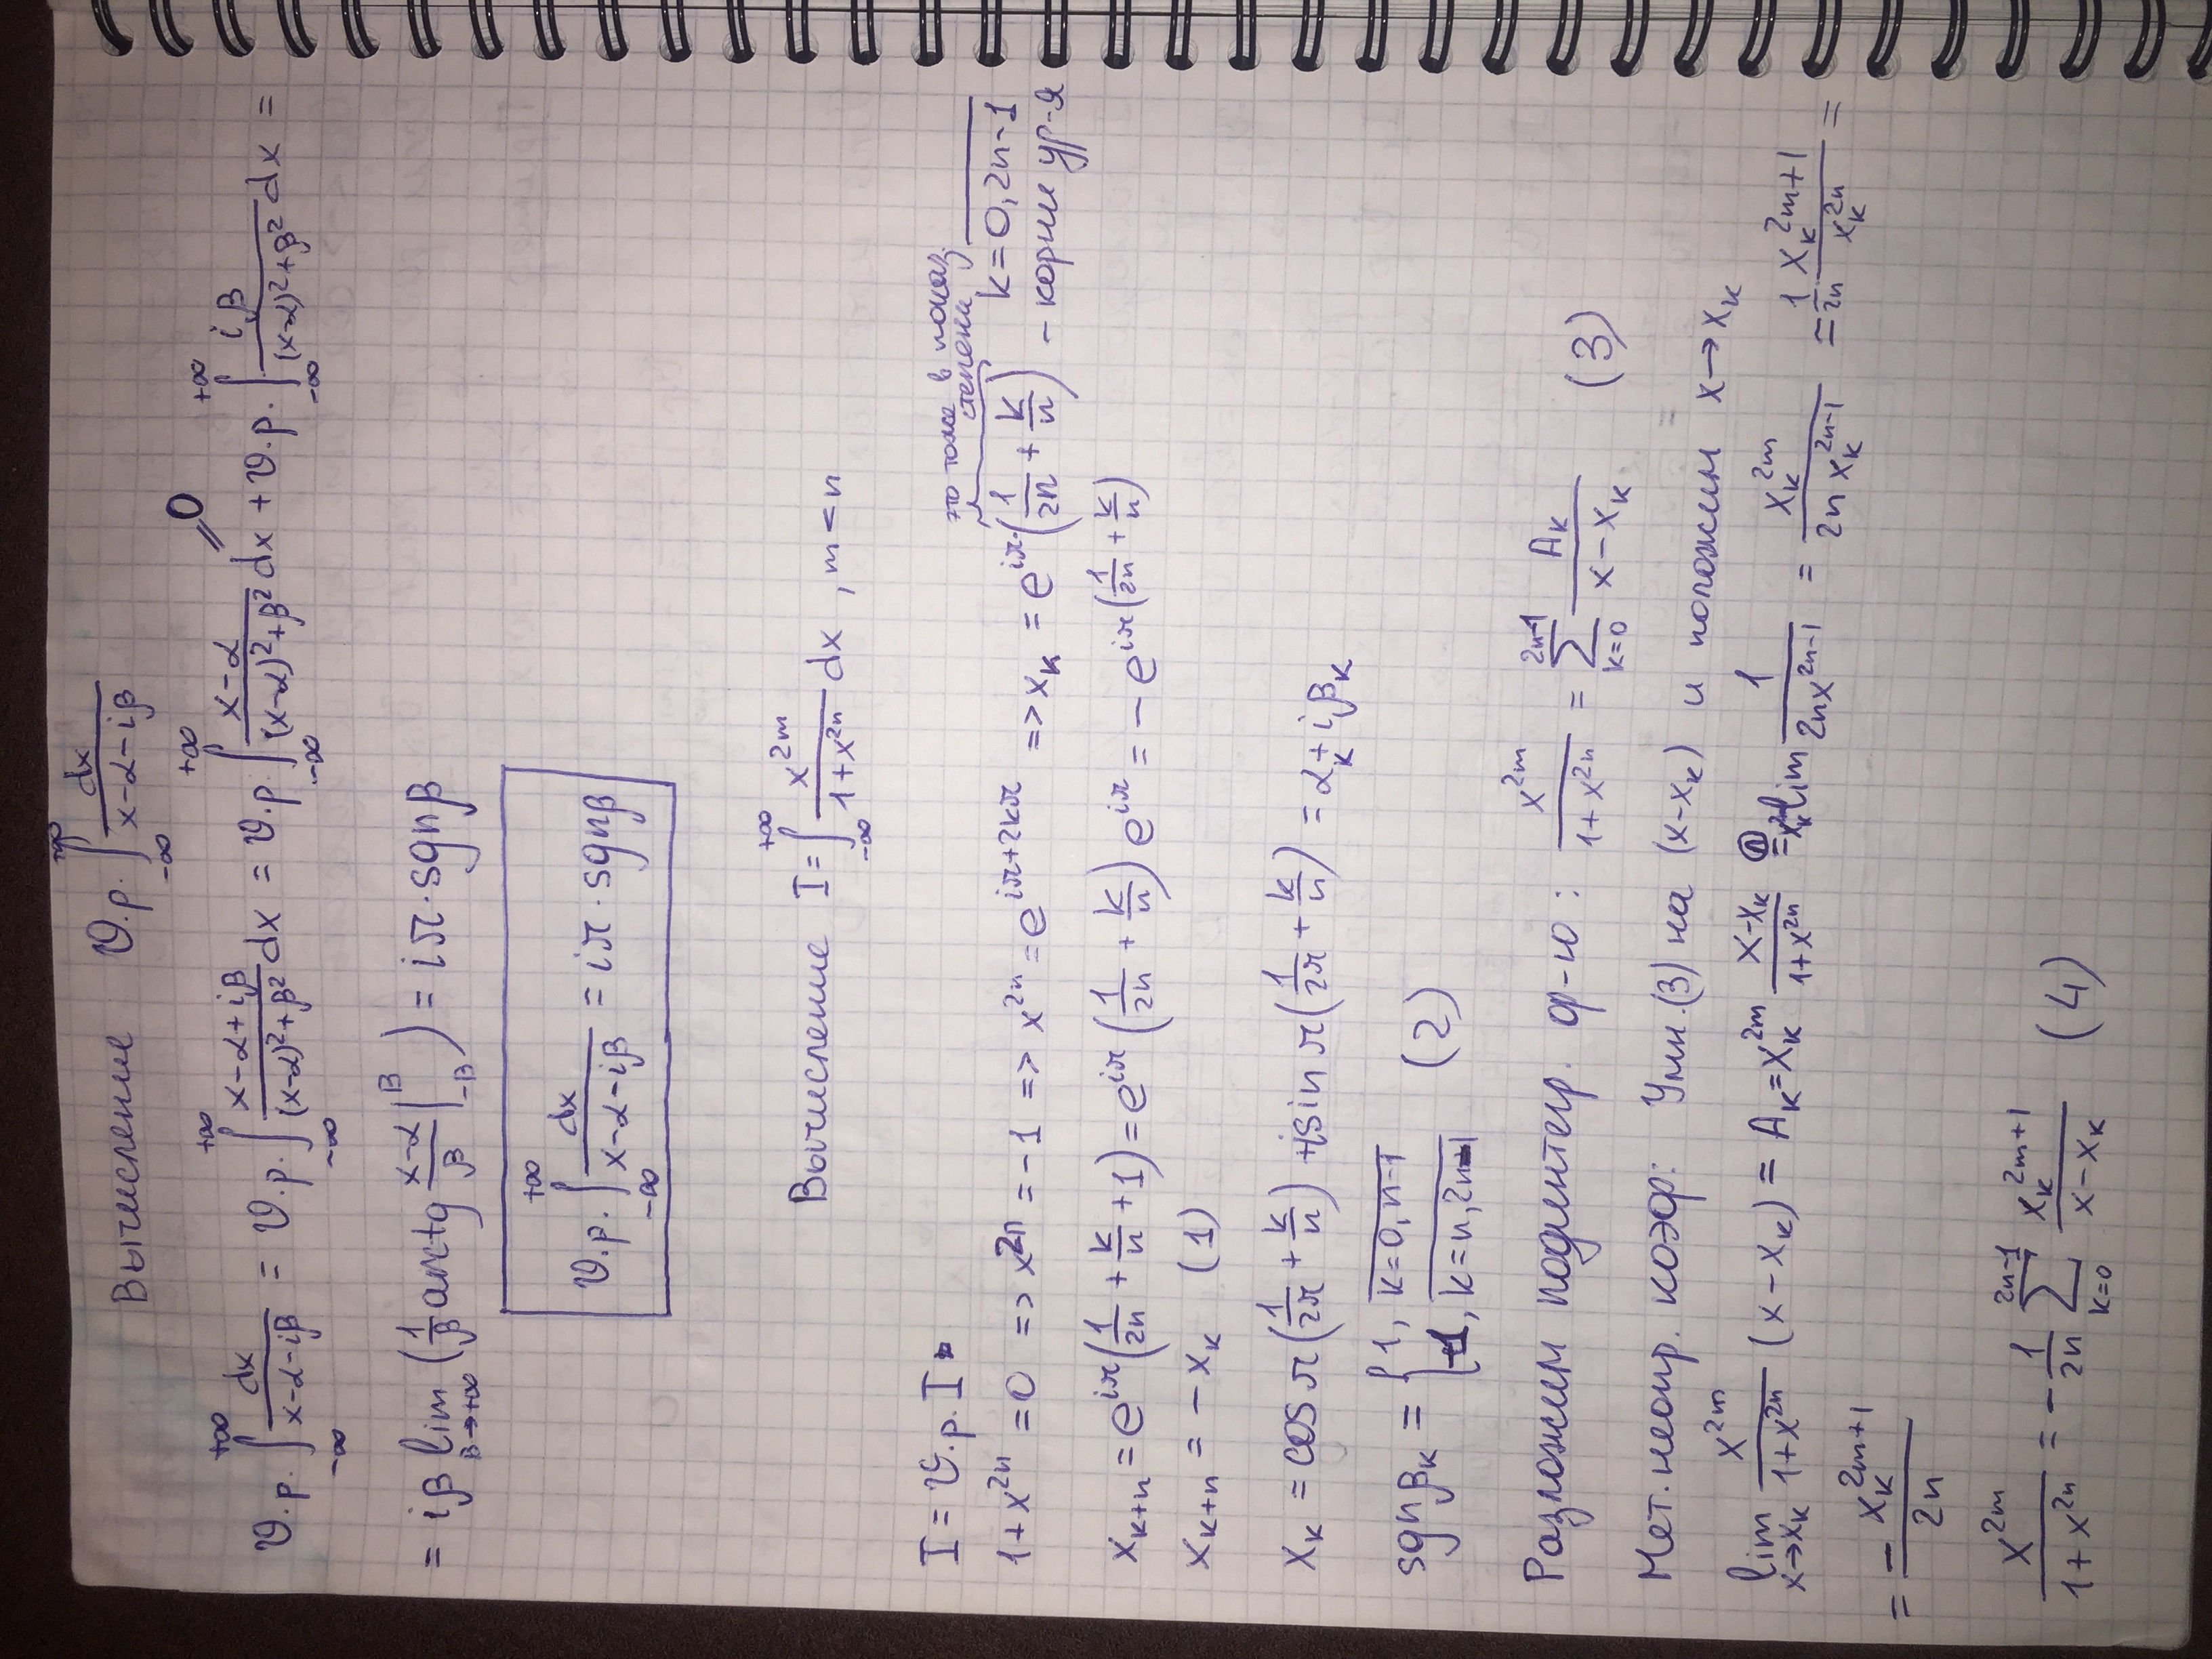 Вычисление v.p. ∫_{-∞}^{+∞} dx/(x-α-iβ)
v.p. ∫_{-∞}^{+∞} dx/(x-α-iβ) = v.p. ∫_{-∞}^{+∞} (x-α+iβ)/((x-α)²+β²) dx = v.p. ∫_{-∞}^{+∞} (x-α)/((x-α)²+β²) dx (=0) + v.p. ∫_{-∞}^{+∞} iβ/((x-α)²+β²) dx =
= iβ lim_{B→+∞} (1/β arctg (x-α)/β |_{-B}^{B}) = iπ·sgnβ
v.p. ∫_{-∞}^{+∞} dx/(x-α-iβ) = iπ·sgnβ
Вычисление I = ∫_{-∞}^{+∞} x^{2m}/(1+x^{2n}) dx , m<n
I = v.p. I
это тоже в показ. степени
1+x^{2n} = 0 => x^{2n} = -1 => x^{2n} = e^{iπ+2kπ} => x_k = e^{iπ·}(1/2n + k/n) k=0,2n-1 - корни ур-я
x_{k+n} = e^{iπ}(1/2n + k/n + 1) = e^{iπ}(1/2n + k/n) e^{iπ} = -e^{iπ(1/2n + k/n)}
x_{k+n} = -x_k (1)
x_k = cos π(1/2π + k/n) + i sin π(1/2π + k/n) = α_k + iβ_k
sgnβ_k = { 1, k=0,n-1
-1, k=n,2n-1 (2)
Разложим подинтегр. ф-ю: x^{2m}/(1+x^{2n}) = ∑_{k=0}^{2n-1} A_k/(x-x_k) (3)
Мет. неопр. коэф: Умн. (3) на (x-x_k) и положим x→x_k
lim_{x→x_k} x^{2m}/(1+x^{2n}) (x-x_k) = A_k = x_k^{2m} (x-x_k)/(1+x^{2n}) =(Л) x_k^{2m} lim 1/(2nx^{2n-1}) = x_k^{2m}/(2n x_k^{2n-1}) = 1/2n x_k^{2m+1}/x_k^{2n} =
= -x_k^{2m+1}/2n
x^{2m}/(1+x^{2n}) = -1/2n ∑_{k=0}^{2n-1} x_k^{2m+1}/(x-x_k) (4)